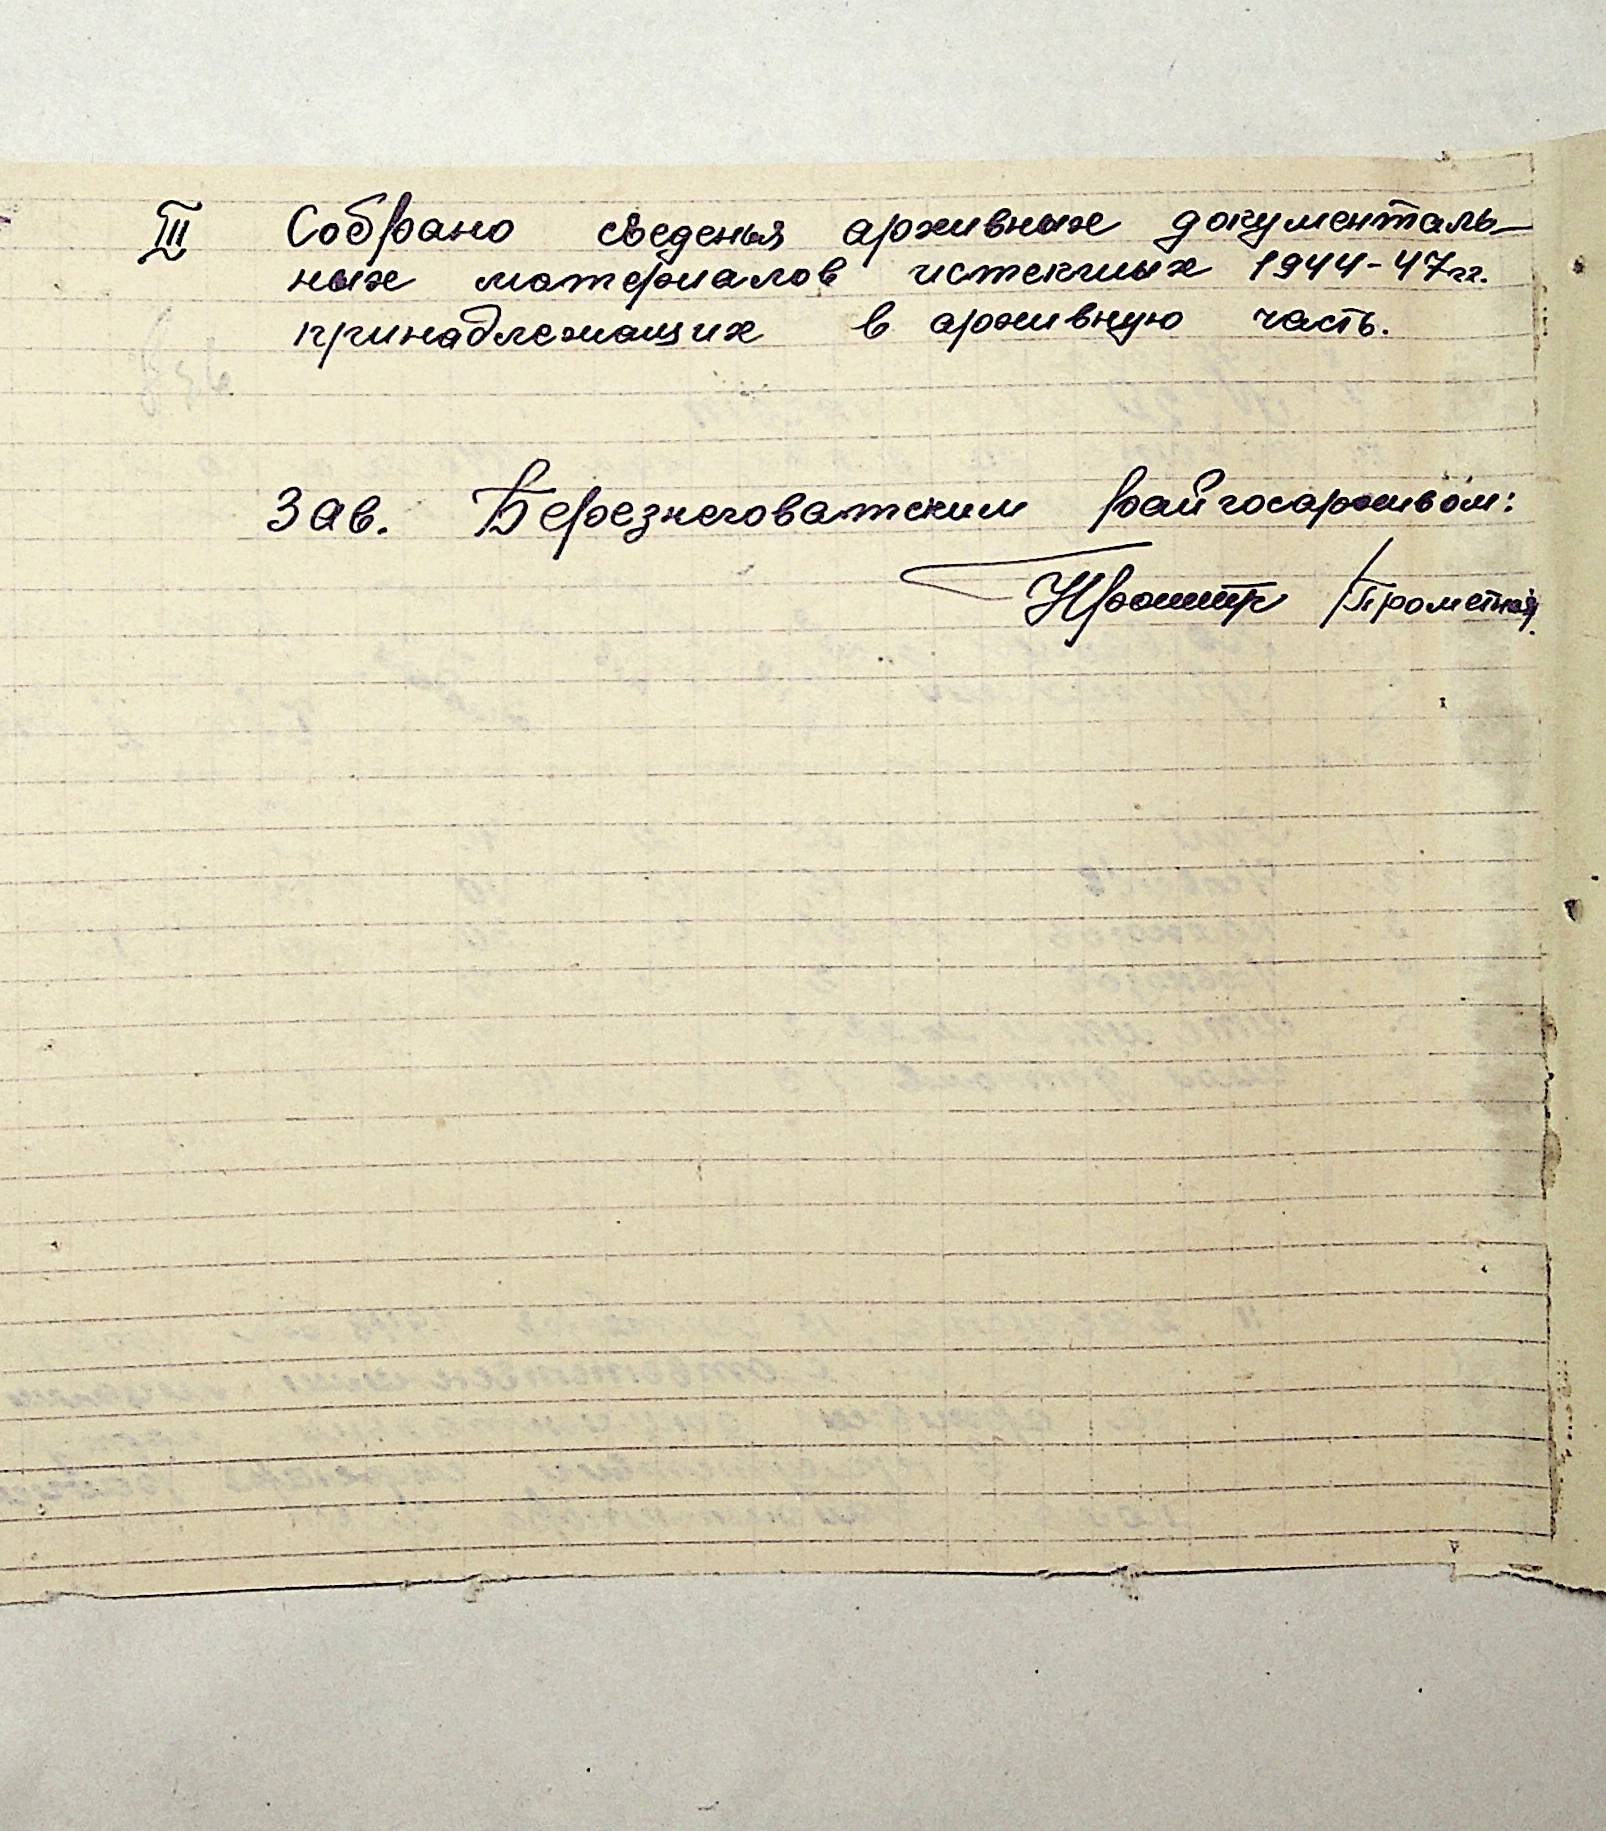 III Собрано сведенья архивных документаль-
ных материалов истекших 1944-47гг.
принадлежащих в архивную часть.
Зав. Березнеговатским райгосархивом:
/Прометная